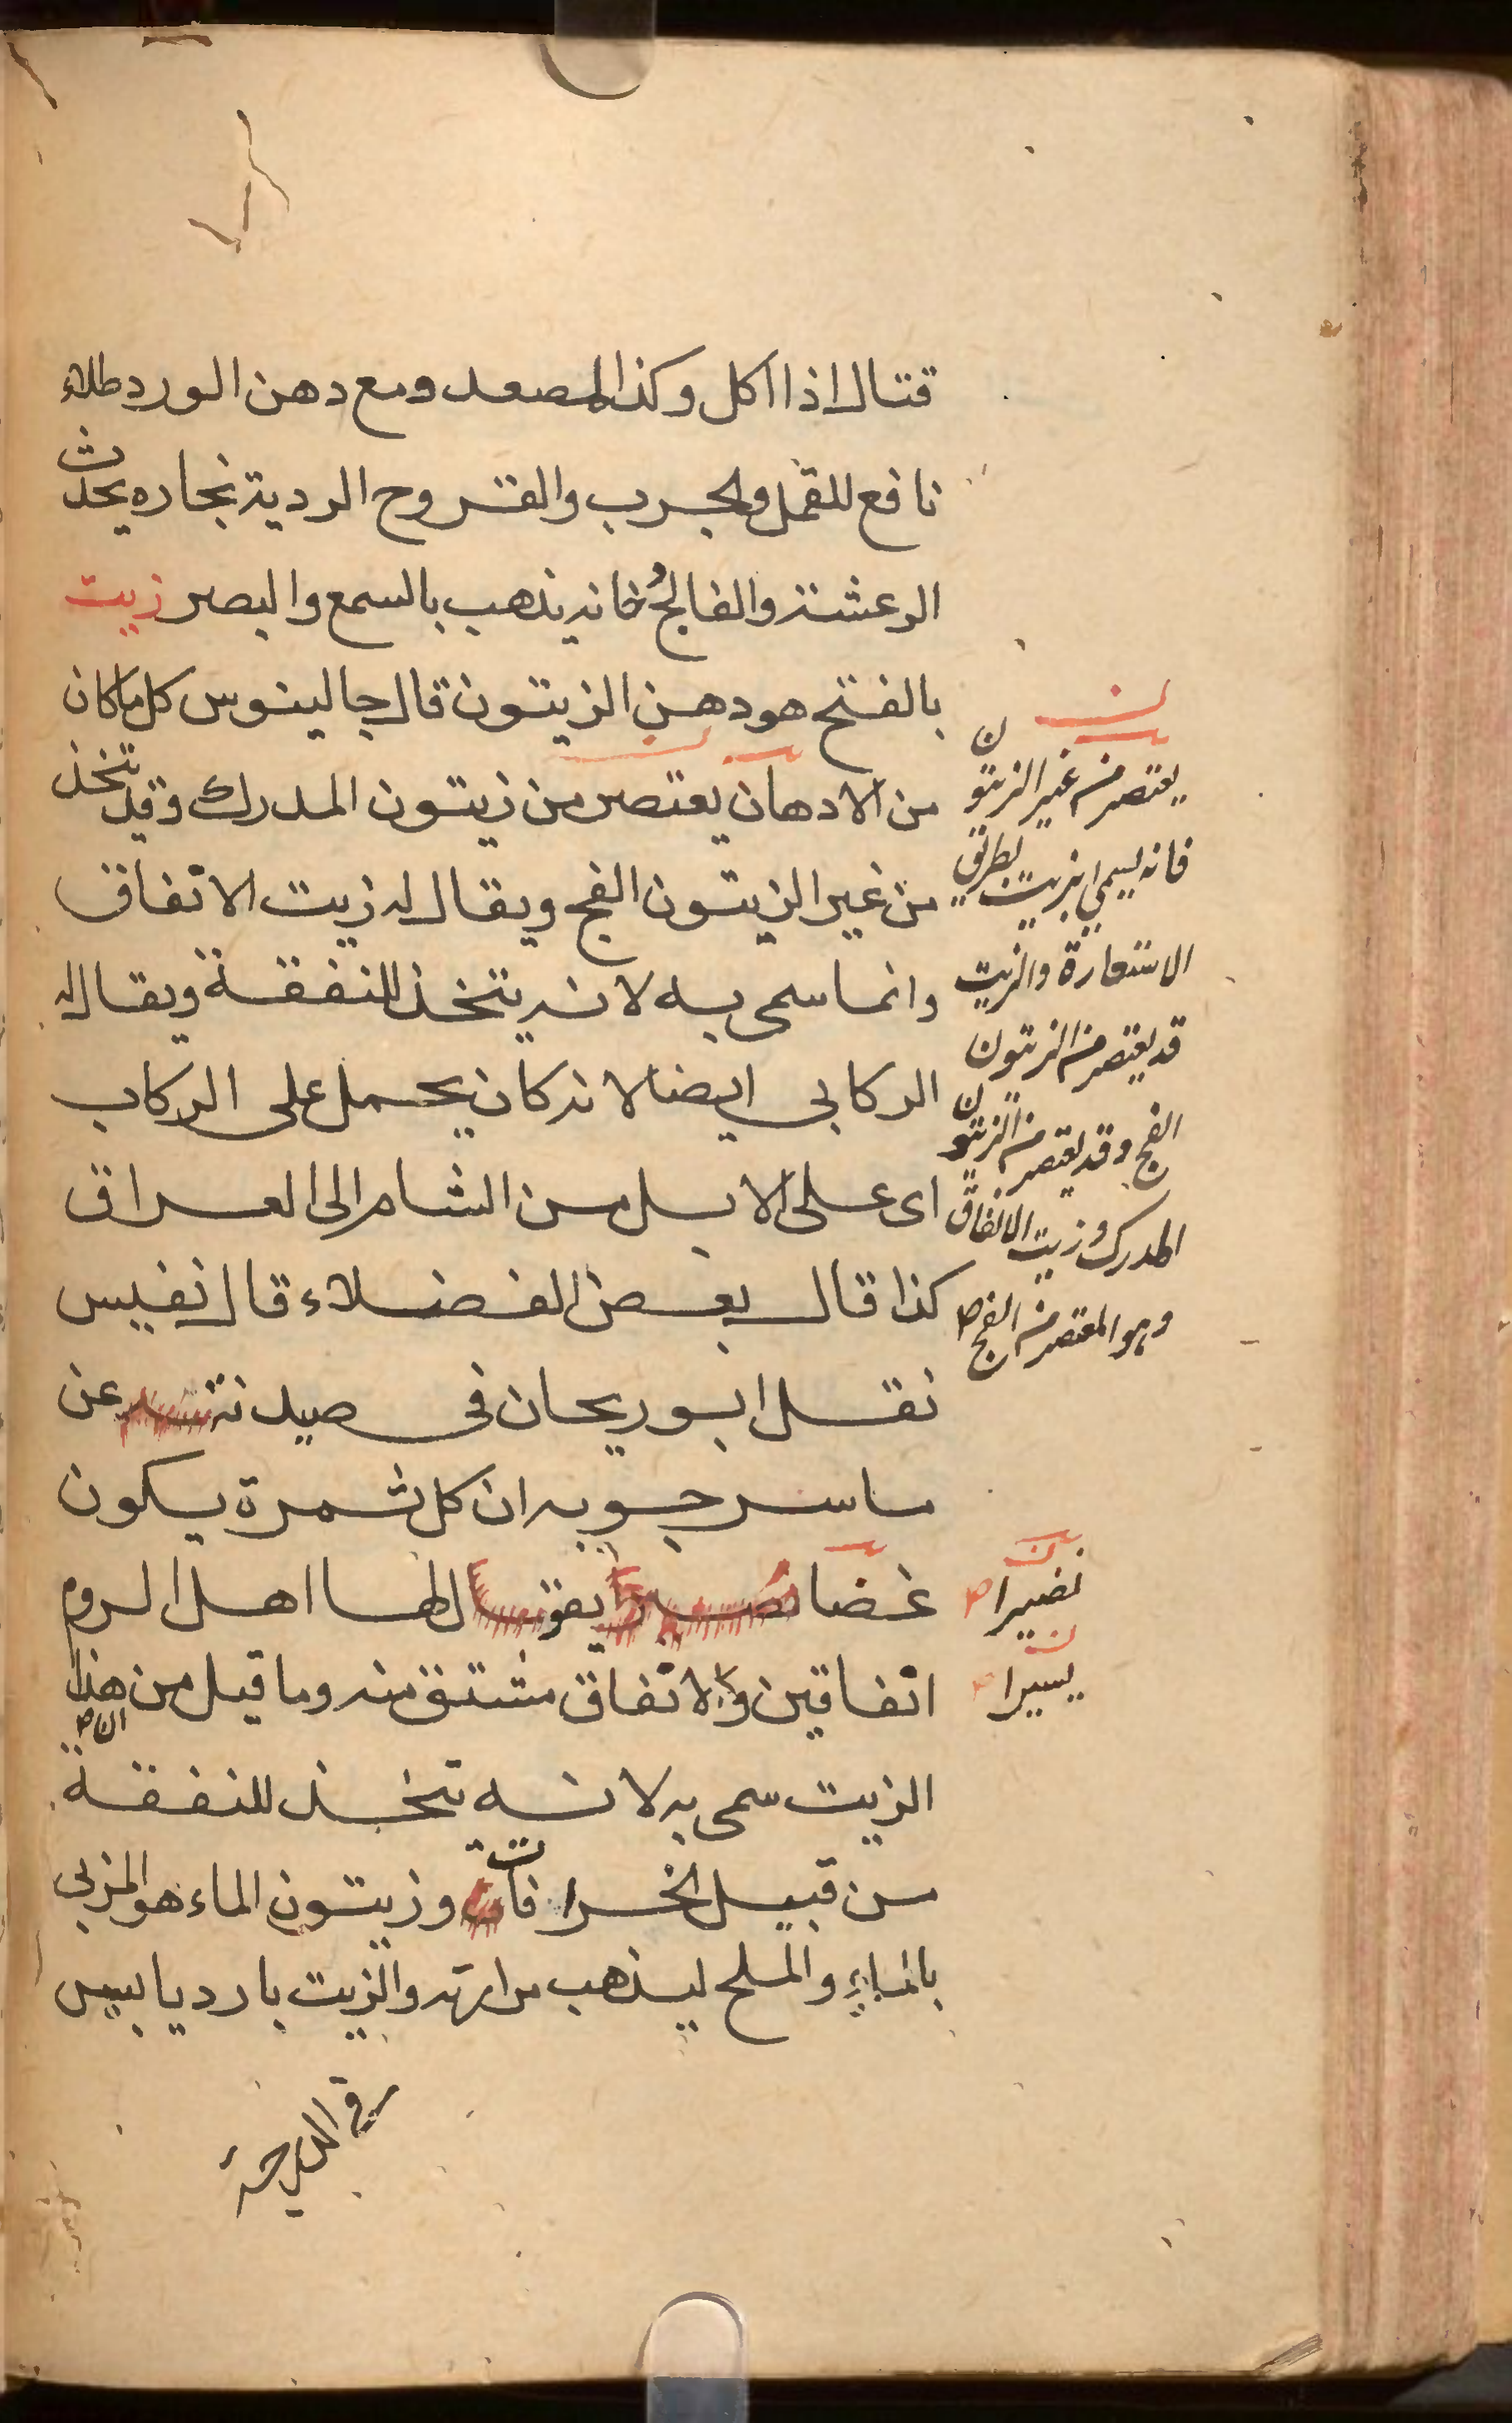 قتال اذا اكل وكذا المصعد ومع دهن الورد طلاء
نافع للقمل والجرب والقروح الردية بخاره يحدث
الرعشة والفالج وخانه يذهب بالسمع والبصر زيت
بالفتح هو دهن الزيتون قال جالينوس كل ما كان
من الادهان يعتصر من زيتون المدرك وقد يتخذ
من غير الزيتون الفج ويقال له زيت الاتفاق
وانما سمى به لانه يتخذ للنفقة ويقال له
الركابى ايضا لانه كان يحمل على الركاب
اى على الابل من الشام الى العراق
كذا قال بعض الفضلاء قال نفيس
نقل ابو ريحان فى صيدنته عن
ماسرجويه ان كل ثمرة يكون
غضا يقول لها اهل الروم
اتفاقين والاتفاق مشتق منه وما قيل من هذا
ان
الزيت سمى به لانه يتخذ للنفقة
من قبيل الخرافات وزيتون الماء هو المربى
بالماء والملح ليذهب مرارته والزيت بارد يابس
يعتصر من غير الزيتون
فانه يسمى بزيت بطريق
الاستعارة والزيت
قد يعتصر من الزيتون
الفج وقد يعتصر من الزيتون
المدرك وزيت الانفاق
وهو المعتصر من الفج صح
نضيرا صح
يسيرا
فى الدرجة